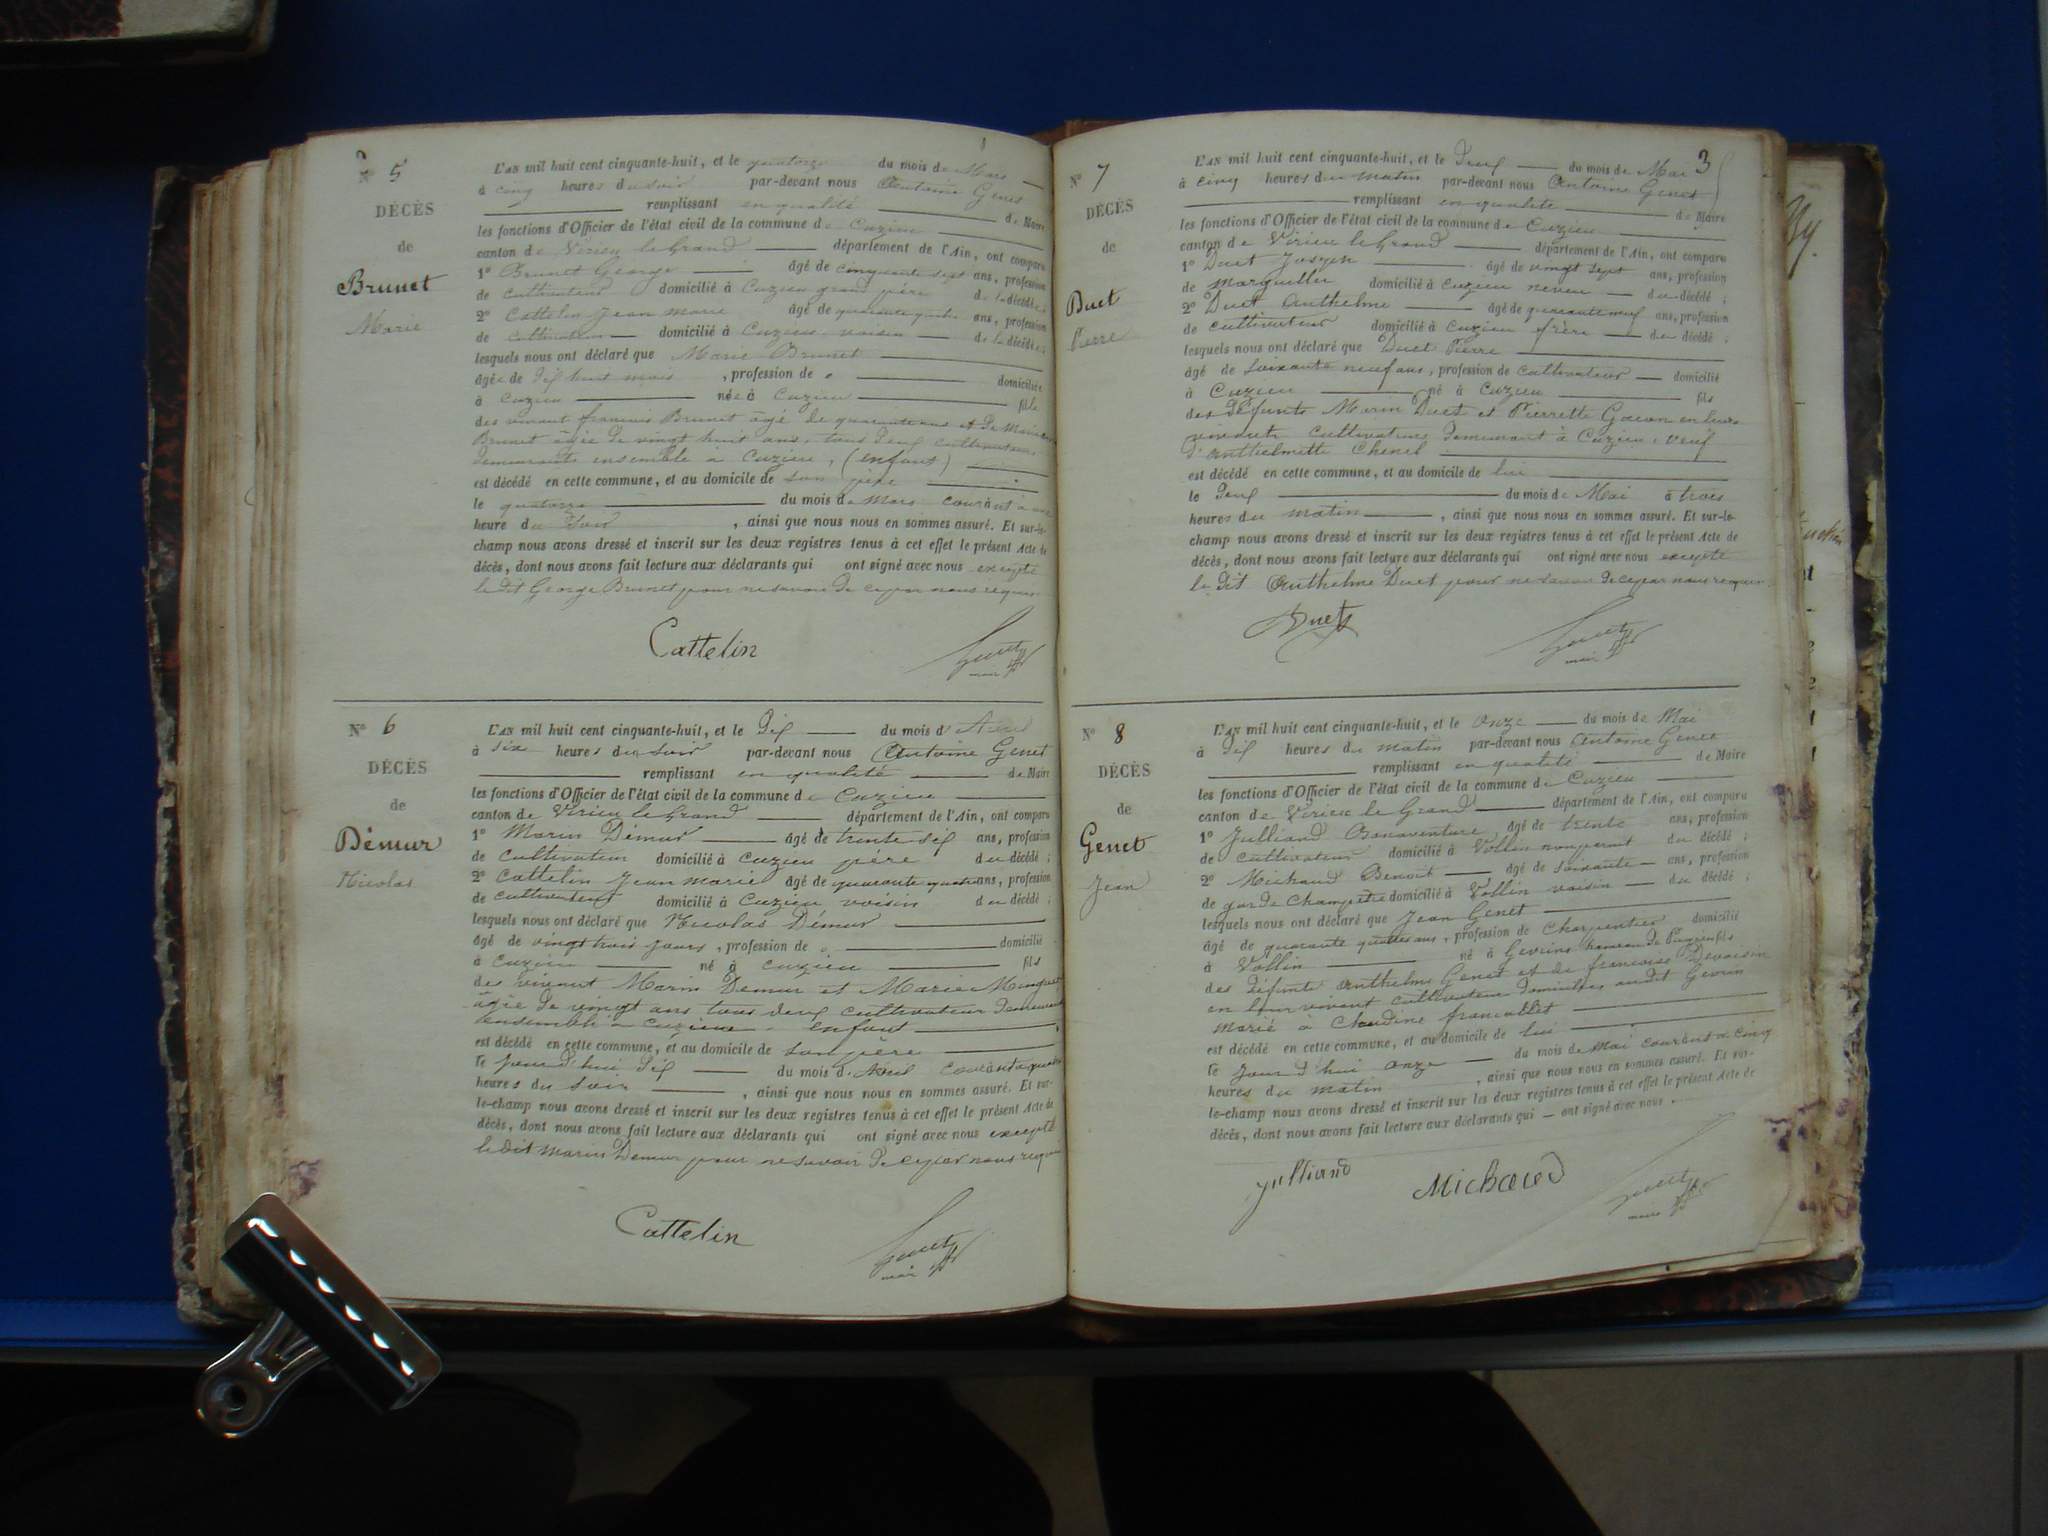 N° 5
DÉCÈS
de
Brunet
Marie
L'AN mil huit cent cinquante-huit, et le quatorze du mois de Mars
à cinq heures du soir par-devant nous Antoine Genet
remplissant en qualité de Maire
les fonctions d'Officier de l'état civil de la commune de Cuzieu
canton de Virieu le Grand département de l'Ain, ont comparu
1° Brunet George âgé de cinquante sept ans, profession
de cultivateur domicilié à Cuzieu grand père de la décédée
2° Cattelin Jean Marie âgé de quarante quatre ans, profession
de cultivateur domicilié à Cuzieu voisin de la décédée
lesquels nous ont déclaré que Marie Brunet
âgée de dix huit mois, profession de domiciliée
à Cuzieu née à Cuzieu fille
des vivant francois Brunet âgé de quarante ans et de
Brunet âgée de vingt huit ans, tous deux cultivateurs
demeurants ensemble à Cuzieu, (enfant)
est décédé en cette commune, et au domicile de son père
le quatorze du mois de Mars courant à
heure du soir, ainsi que nous nous en sommes assuré. Et sur-le-
champ nous avons dressé et inscrit sur les deux registres tenus à cet effet le présent Acte de
décès, dont nous avons fait lecture aux déclarants qui ont signé avec nous excepté
le dit George Brunet pour ne savoir de ce par nous requis
Cattelin Genet
maire
N° 6
DÉCÈS
de
Démur
Nicolas
L'AN mil huit cent cinquante-huit, et le dix du mois d'Avril
à six heures du soir par-devant nous Antoine Genet
remplissant en qualité de Maire
les fonctions d'Officier de l'état civil de la commune de Cuzieu
canton de Virieu le Grand département de l'Ain, ont comparu
1° Marin Démur âgé de trente six ans, profession
de cultivateur domicilié à Cuzieu père du décédé ;
2° Cattelin Jean Marie âgé de quarante quatre ans, profession
de cultivateur domicilié à Cuzieu voisin du décédé ;
lesquels nous ont déclaré que Nicolas Démur
âgé de vingt trois jours, profession de domicilié
à Cuzieu né à Cuzieu fils
des vivant Marin Demur et Marie
âgée de vingt ans tous deux cultivateur demeurant
ensemble à Cuzieu - enfant
est décédé en cette commune, et au domicile de son père
le jour d'hui dix du mois d'Avril courant à quatre
heures du soir, ainsi que nous nous en sommes assuré. Et sur-
le-champ nous avons dressé et inscrit sur les deux registres tenus à cet effet le présent Acte de
décès, dont nous avons fait lecture aux déclarants qui ont signé avec nous excepté
le dit Marin Demur pour ne savoir de ce par nous requis
Cattelin Genet
maire
3
N° 7
DÉCÈS
de
Duet
Pierre
L'AN mil huit cent cinquante-huit, et le deux du mois de Mai
à cinq heures du matin par-devant nous Antoine Genet
remplissant en qualité de Maire
les fonctions d'Officier de l'état civil de la commune de Cuzieu
canton de Virieu le Grand département de l'Ain, ont comparu
1° Duet Joseph âgé de vingt sept ans, profession
de marguiller domicilié à Cuzieu neveu du décédé ;
2° Duet Anthelme âgé de quarante neuf ans, profession
de cultivateur domicilié à Cuzieu frère du décédé ;
lesquels nous ont déclaré que Duet Pierre
âgé de soixante neuf ans, profession de cultivateur domicilié
à Cuzieu né à Cuzieu fils
des défunts Marin Duet et Pierrette en leurs
vivants cultivateurs demeurant à Cuzieu, veuf
d'Anthelmette Chenel
est décédé en cette commune, et au domicile de lui
le deux du mois de Mai à trois
heures du matin, ainsi que nous nous en sommes assuré. Et sur-le-
champ nous avons dressé et inscrit sur les deux registres tenus à cet effet le présent Acte de
décès, dont nous avons fait lecture aux déclarants qui ont signé avec nous excepté
le dit Anthelme Duet pour ne savoir de ce par nous requis
Duet Genet
maire
N° 8
DÉCÈS
de
Genet
Jean
L'AN mil huit cent cinquante-huit, et le onze du mois de Mai
à dix heures du matin par-devant nous Antoine Genet
remplissant en qualité de Maire
les fonctions d'Officier de l'état civil de la commune de Cuzieu
canton de Virieu le Grand département de l'Ain, ont comparu
1° Julliand Bonaventure, âgé de trente ans, profession
de cultivateur domicilié à Vollin non parent du décédé ;
2° Michaud Benoit âgé de soixante ans, profession
de garde champetre domicilié à Vollin voisin du décédé ;
lesquels nous ont déclaré que Jean Genet
âgé de quarante quatre ans, profession de Charpentier domicilié
à Vollin né à Gevrin hameau de fils
des défunts Anthelme Genet et de francoise Devaisin
en leur vivant cultivateurs domiciliés audit Gevrin
marié à Claudine francallet
est décédé en cette commune, et au domicile de lui
le jour d'hui onze du mois de Mai courant à cinq
heures du matin, ainsi que nous nous en sommes assuré. Et sur-
le-champ nous avons dressé et inscrit sur les deux registres tenus à cet effet le présent Acte de
décès, dont nous avons fait lecture aux déclarants qui ont signé avec nous
Julliand Michaud Genet
maire